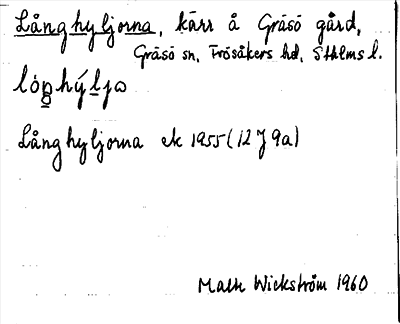 Långhyljorna, kärr å Gräsö gård,
Gräsö sn, Frösåkers hd, Sthlms l.
Långhyljorna ek 1955 (12 J 9a)
Math Wickström 1960